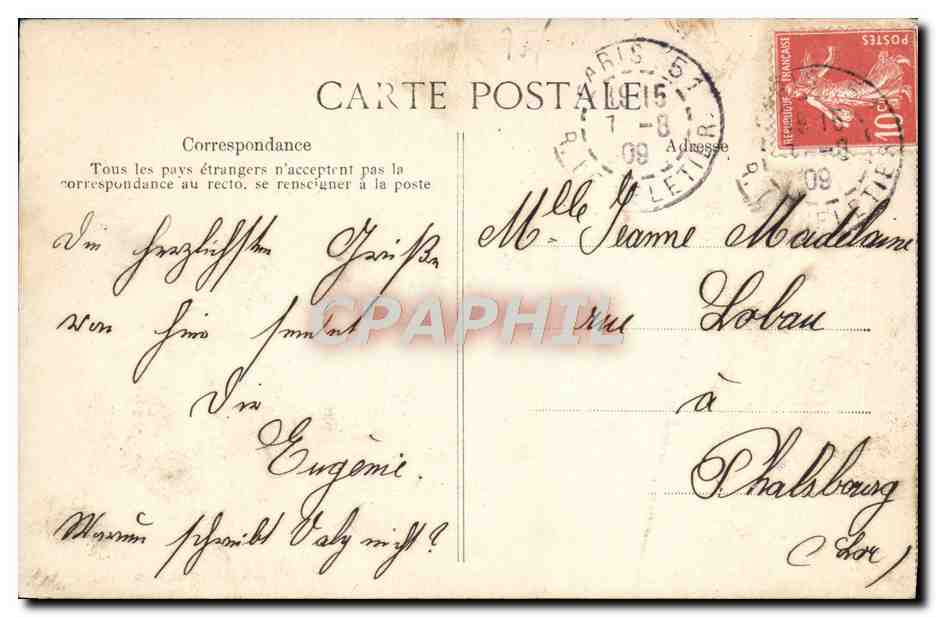 CARTE POSTALE
PARIS 51
15
7 -8
09
R. LE PELETIER
REPUBLIQUE FRANÇAISE
POSTES
10c
Correspondance
Adresse
Tous les pays étrangers n'acceptent pas la
correspondance au recto, se renseigner à la poste
Die herzlichsten Grüße
von hier sendet
Dir
Eugénie.
Warum schreibt Saly nicht?
Mlle Jeanne Madelaine
rue Lobau
à
Phalsbourg
(Lor)
CPAPHIL